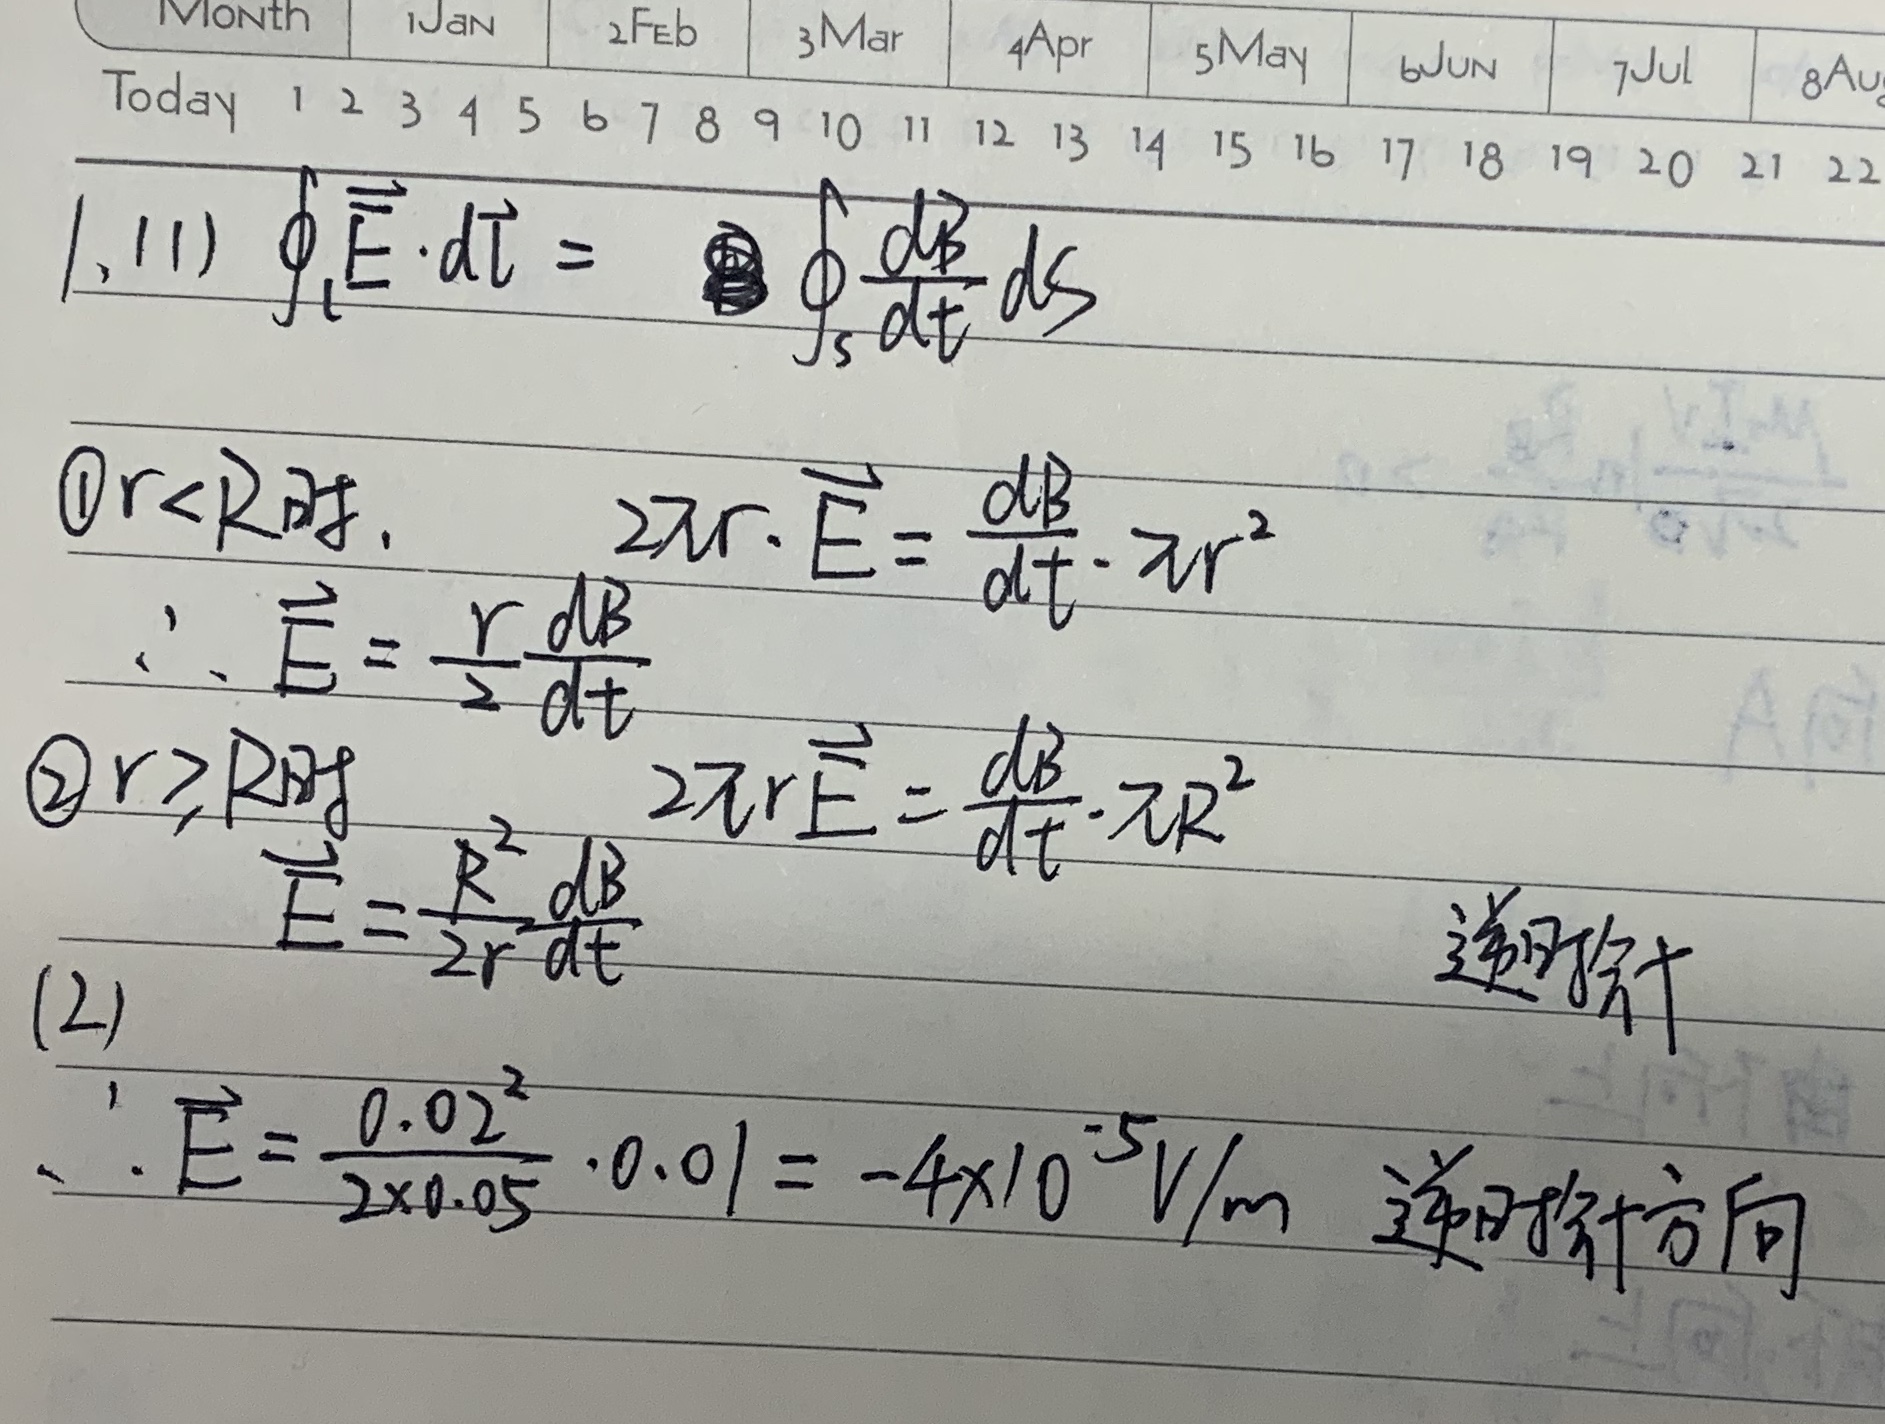 Month 1Jan 2Feb 3Mar 4Apr 5May 6Jun 7Jul 8Aug
Today 1 2 3 4 5 6 7 8 9 10 11 12 13 14 15 16 17 18 19 20 21 22
1. (1) ∮_L E⃗·dl⃗ = ∮_S dB/dt dS
① r<R时, 2πr·E⃗ = dB/dt · πr²
∴ E⃗ = r/2 dB/dt
② r≥R时 2πrE⃗ = dB/dt · πR²
E⃗ = R²/2r dB/dt 逆时针
(2)
∴ E⃗ = 0.02²/2×0.05 ·0.01 = -4×10⁻⁵V/m 逆时针方向